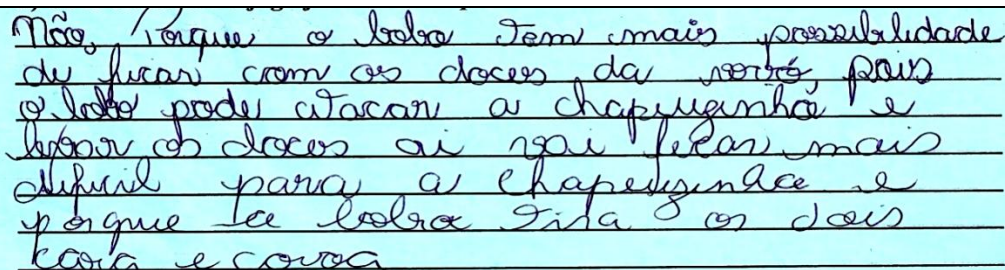 Não, Porque o lobo tem mais possibilidade
de ficar com os doces da vovó, pois
o lobo pode atacar a chapeuzinho e
levar os doces ai vai ficar mais
dificil para a chapeuzinho e
porque se lobo tira os dois
cara e coroa